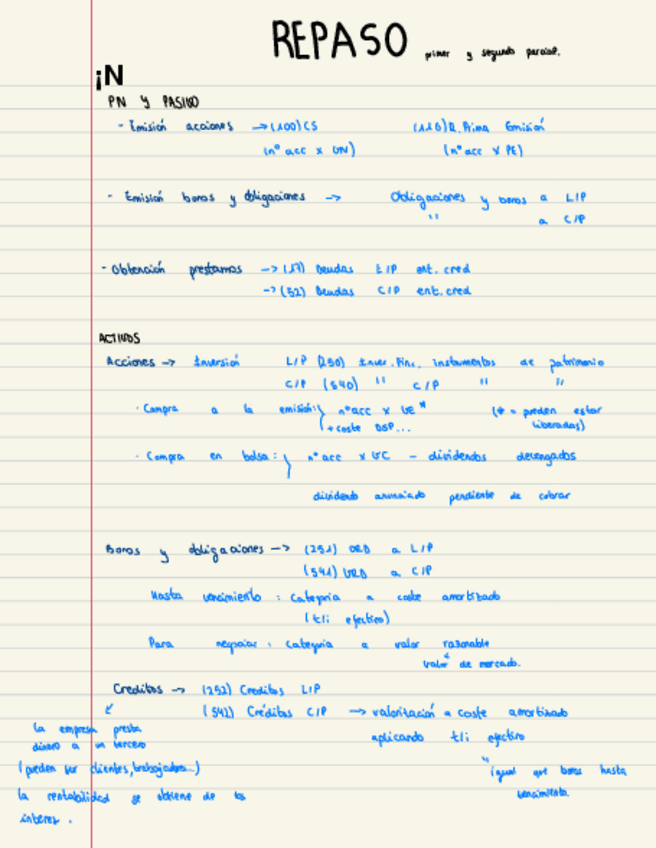 REPASO primer y segundo parcial.
¡N
PN Y PASIVO
- Emisión acciones → (100) CS (110) R. Prima Emisión
(nº acc x VN) (nº acc x PE)
- Emisión bonos y obligaciones → Obligaciones y bonos a L/P
" a C/P
- Obtención prestamos → (17) Deudas L/P ent. cred
→ (52) Deudas C/P ent. cred
ACTIVOS
Acciones → Inversión L/P (250) Inver. Finc. instrumentos de patrimonio
C/P (540) " C/P " "
· Compra a la emisión: } nº acc x VE * (* = pueden estar
+ coste DSP... liberadas)
· Compra en bolsa: } nº acc x VC - dividendos devengados
dividendo anunciado pendiente de cobrar
Bonos y obligaciones → (251) VRD a L/P
(541) VRD a C/P
Hasta vencimiento : categoria a coste amortizado
(tli efectivo)
Para negociar : categoria a valor razonable
valor de mercado.
Creditos → (252) Creditos L/P
(542) Créditos C/P → valorización a coste amortizado
la empresa presta
dinero a un tercero aplicando tli efectivo
(pueden ser clientes, trabajadores...) " igual que bonos hasta
la rentabilidad se obtiene de los vencimiento.
interes.